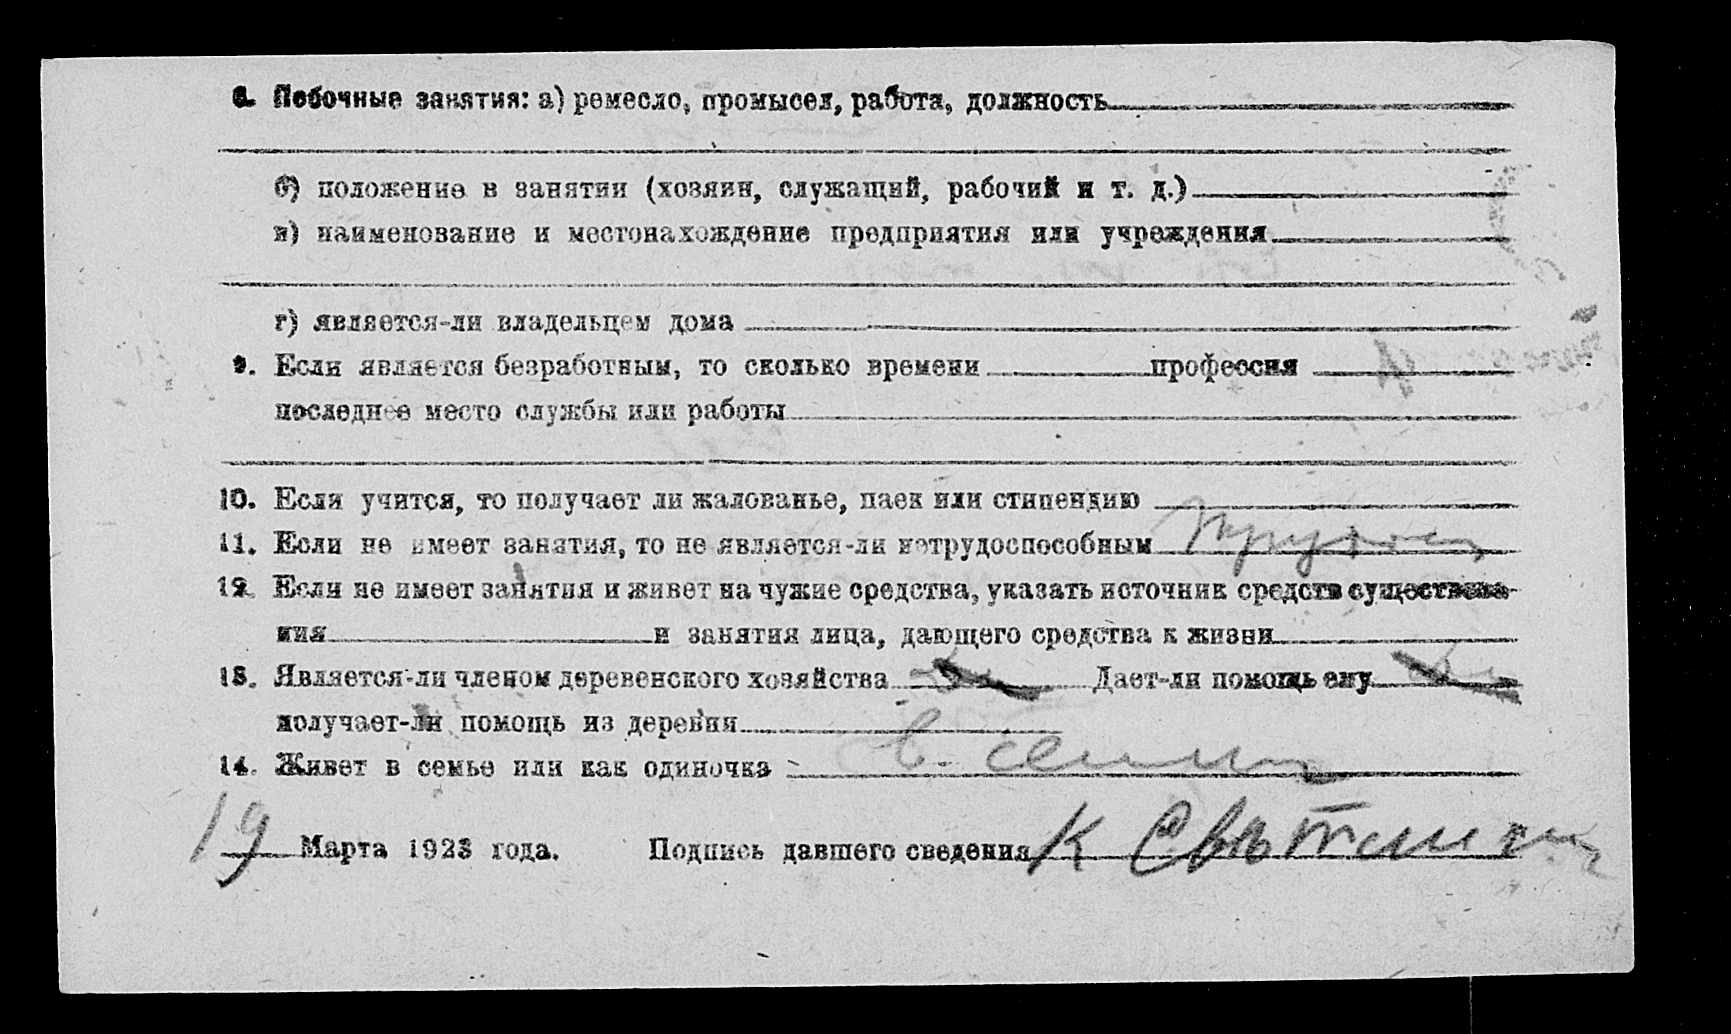 8. Побочные занятия: а) ремесло, промысел, работа, должность
б) положение в занятии (хозяин, служащий, рабочий и т. д.)
в) наименование и местонахождение предприятия или учреждения
г) является-ли владельцем дома
9. Если является безработным, то сколько времени профессия
последнее место службы или работы
10. Если учится, то получает ли жалованье, паек или стипендию
11. Если не имеет занятия, то не является-ли нетрудоспособным
12. Если не имеет занятия и живет на чужие средства, указать источник средств существова-
ния и занятия лица, дающего средства к жизни
13. Является-ли членом деревенского хозяйства Дает-ли помощь ему
получает-ли помощь из деревня
14. Живет в семье или как одиночка в семьи
19 Марта 1923 года. Подпись давшего сведения К